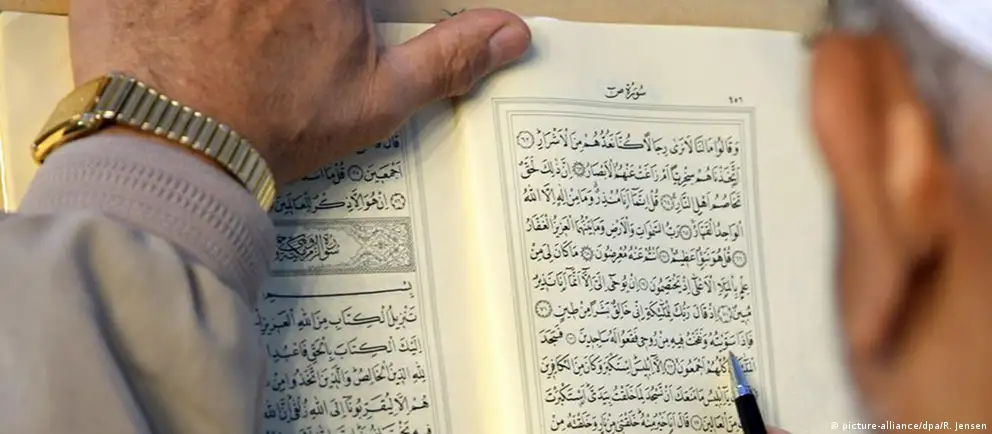 سُورَةُ صٓ
٤٥٦
وَقَالُوا مَا لَنَا لَا نَرٰى رِجَالًا كُنَّا نَعُدُّهُمْ مِنَ الْاَشْرَارِ ﴿٦٢﴾
اَتَّخَذْنَاهُمْ سِخْرِيًّا اَمْ زَاغَتْ عَنْهُمُ الْاَبْصَارُ ﴿٦٣﴾ اِنَّ ذٰلِكَ لَحَقٌّ
تَخَاصُمُ اَهْلِ النَّارِ ﴿٦٤﴾ قُلْ اِنَّمَا اَنَا مُنْذِرٌ وَمَا مِنْ اِلٰهٍ اِلَّا اللّٰهُ
الْوَاحِدُ الْقَهَّارُ ﴿٦٥﴾ رَبُّ السَّمٰوَاتِ وَالْاَرْضِ وَمَا بَيْنَهُمَا الْعَزِيزُ الْغَفَّارُ
﴿٦٦﴾ قُلْ هُوَ نَبَؤٌا عَظِيمٌ ﴿٦٧﴾ اَنْتُمْ عَنْهُ مُعْرِضُونَ ﴿٦٨﴾ مَا كَانَ لِيَ مِنْ
عِلْمٍ بِالْمَلَاِ الْاَعْلٰى اِذْ يَخْتَصِمُونَ ﴿٦٩﴾ اِنْ يُوحٰى اِلَيَّ اِلَّا اَنَّمَا اَنَا نَذِيرٌ
مُبِينٌ ﴿٧٠﴾ اِذْ قَالَ رَبُّكَ لِلْمَلٰئِكَةِ اِنِّي خَالِقٌ بَشَرًا مِنْ طِينٍ ﴿٧١﴾
فَاِذَا سَوَّيْتُهُ وَنَفَخْتُ فِيهِ مِنْ رُوحِي فَقَعُوا لَهُ سَاجِدِينَ ﴿٧٢﴾ فَسَجَدَ
كُلُّهُمْ اَجْمَعُونَ ﴿٧٣﴾ اِلَّا اِبْلِيسَ اِسْتَكْبَرَ وَكَانَ مِنَ الْكَافِرِينَ
يَا اِبْلِيسُ مَا مَنَعَكَ اَنْ تَسْجُدَ لِمَا خَلَقْتُ بِيَدَيَّ اَسْتَكْبَرْتَ
مِنَ الْعَالِينَ ﴿٧٥﴾ قَالَ اَنَا خَيْرٌ مِنْهُ خَلَقْتَنِي مِنْ نَارٍ وَخَلَقْتَهُ مِنْ
قَالَ
اَجْمَعِينَ ﴿٨٥﴾ قُلْ مَا
اِنْ هُوَ اِلَّا ذِكْرٌ لِلْعَالَمِينَ
سُورَةُ الزُّمَرِ
بِسْمِ
تَنْزِيلُ الْكِتَابِ مِنَ اللّٰهِ الْعَزِيزِ
اِلَيْكَ الْكِتَابَ بِالْحَقِّ فَاعْبُدِ
لِلّٰهِ الدِّينُ الْخَالِصُ وَالَّذِينَ اتَّخَذُوا مِنْ
هُمْ اِلَّا لِيُقَرِّبُونَا اِلَى اللّٰهِ زُلْفٰى اِنَّ اللّٰهَ
© picture-alliance/dpa/R. Jensen